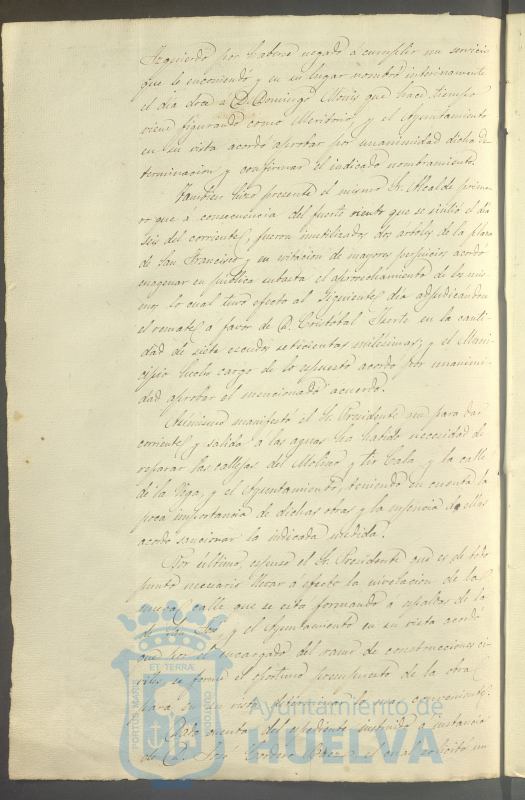 Izquierdo por haberse negado a cumplir un servicio
que le encomendó y en su lugar nombró interinamente
el dia doce a D. Domingo que hace tiempo
viene figurando como Meritorio, y el Ayuntamiento
en su vista acordó aprobar por unanimidad dicha de
terminacion y confirmar el indicado nombramiento.
Tambien hizo presente el mismo Sr. Alcalde prime
ro que a consecuencia del fuerte viento que se sintió el dia
seis del corriente, fueron inutilizados dos arboles de la plaza
de San Francisco y en evitacion de mayores perjuicios acordó
enagenar en pública subasta el aprovechamiento de los mis
mos lo cual tuvo efecto al siguiente dia adjudicandose
el remate a favor de D. Cristobal en la canti
dad de siete escudos setecientas milésimas; y el Muni
cipio hecho cargo de lo espuesto acordó por unanimi
dad aprobar el mencionado acuerdo.
Asimismo manifestó el Sr. Presidente que para dar
corriente y salida a las aguas ha habido necesidad de
reparar las callejas del Molino y y la calle
de la Vega, y el Ayuntamiento, teniendo en cuenta la
poca importancia de dichas obras y la urgencia de ellas
acordó sancionar la indicada medida.
Por último, espuso el Sr. Presidente que es de todo
punto necesario llevar a efecto la nivelacion de la
nueva calle que se está formando á espaldas de la
de y el Ayuntamiento en su vista acordó
que por el encargado del ramo de construcciones ci
viles se forme el oportuno presupuesto de la obra
para en su vista determinar lo mas conveniente.
Dada cuenta del espediente instruido a instancia
de D. José Cordero el cual solicitó un
PORTUS MARIS
ET TERRÆ
CUSTODIA
Ayuntamiento de
HUELVA